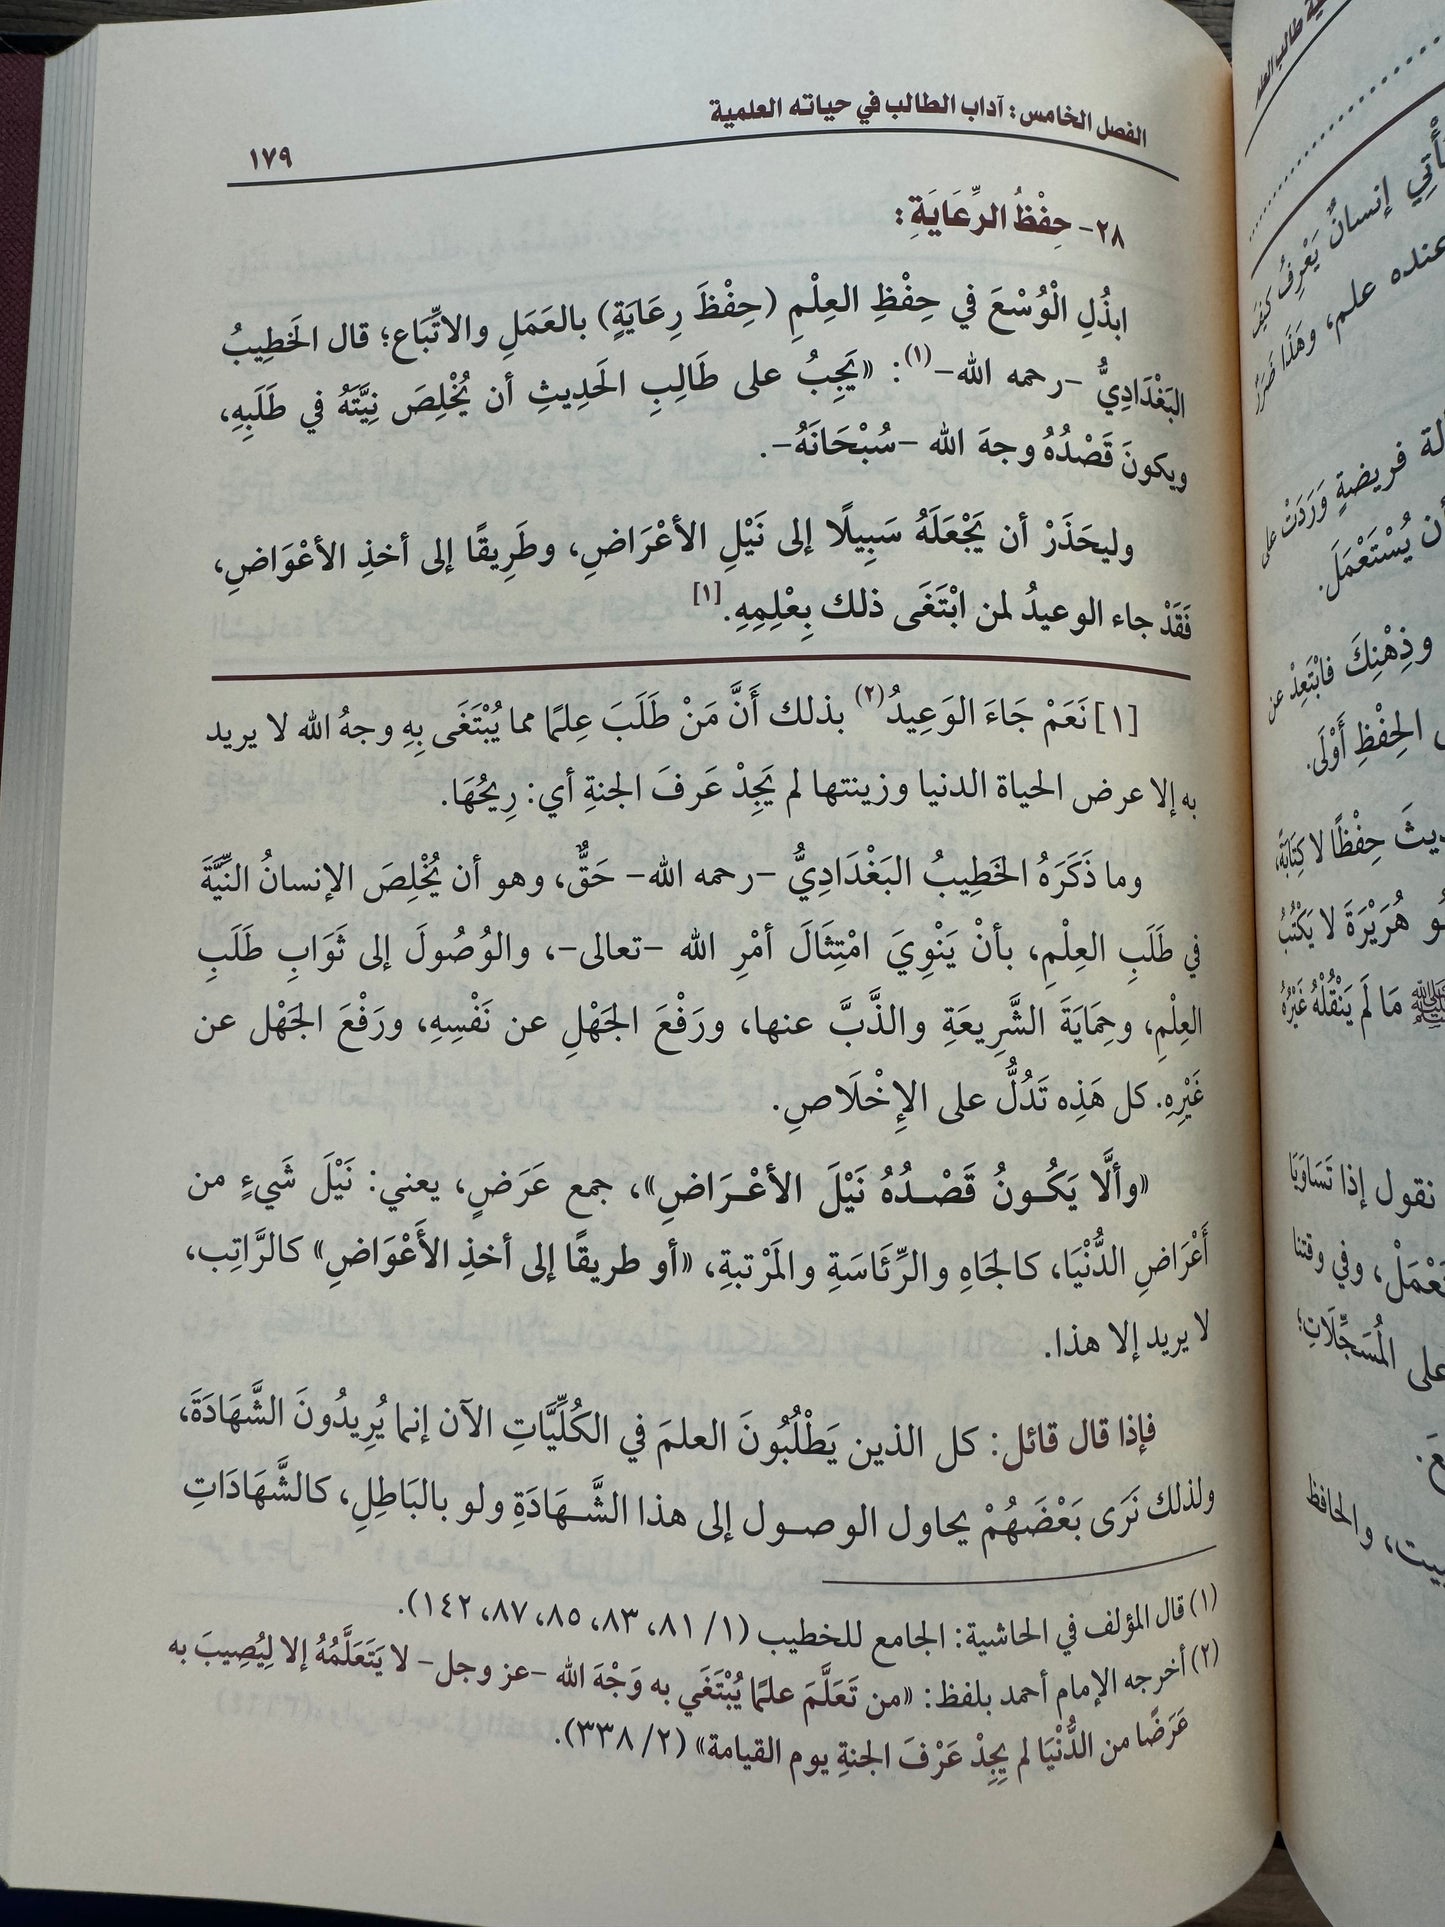 الفصل الخامس: آداب الطالب في حياته العلمية
١٧٩
٢٨- حِفْظُ الرِّعَايَةِ:
ابذُلِ الْوُسْعَ في حِفْظِ العِلْمِ (حِفْظَ رِعَايَةٍ) بالعَمَلِ والاتِّبَاع؛ قال الخَطِيبُ
البَغْدَادِيُّ -رحمه الله-(١): «يَجِبُ على طَالِبِ الحَدِيثِ أن يُخْلِصَ نِيَّتَهُ في طَلَبِهِ،
ويكونَ قَصْدُهُ وجهَ الله -سُبْحَانَهُ-.
وليحَذَرْ أن يَجْعَلَهُ سَبِيلًا إلى نَيْلِ الأعْرَاضِ، وطَرِيقًا إلى أخذِ الأعْوَاضِ،
فَقَدْ جاء الوعيدُ لمن ابْتَغَى ذلك بِعْلِمِهِ.[١]
[١] نَعَمْ جَاءَ الوَعِيدُ(٢) بذلك أَنَّ مَنْ طَلَبَ عِلمًا مما يُبْتَغَى بِهِ وجهُ الله لا يريد
به إلا عرض الحياة الدنيا وزينتها لم يَجِدْ عَرفَ الجنةِ أي: رِيحُهَا.
وما ذَكَرَهُ الخَطِيبُ البَغْدَادِيُّ -رحمه الله- حَقٌّ، وهو أن يُخْلِصَ الإنسانُ النِّيَّةَ
في طَلَبِ العِلْمِ، بأنْ يَنْوِيَ امْتِثَالَ أمْرِ الله -تعالى-، والوُصُولَ إلى ثَوَابِ طَلَبِ
العِلْمِ، وحِمَايَةَ الشَّرِيعَةِ والذَّبَّ عنها، ورَفْعَ الجَهْلِ عن نَفْسِهِ، ورَفْعَ الجَهْل عن
غَيْرِهِ. كل هَذِه تَدُلُّ على الإِخْلَاصِ.
«وألَّا يَكُونُ قَصْدُهُ نَيْلَ الأعْرَاضِ»، جمع عَرَضٍ، يعني: نَيْلَ شَيءٍ من
أَعْرَاضِ الدُّنْيَا، كالجَاهِ والرِّئَاسَةِ والمَرْتبةِ، «أو طريقًا إلى أخذِ الأَعْوَاضِ» كالرَّاتِب،
لا يريد إلا هذا.
فإذا قال قائل: كل الذين يَطْلُبُونَ العلمَ في الكُلِّيَّاتِ الآن إنما يُرِيدُونَ الشَّهَادَةَ،
ولذلك نَرَى بَعْضَهُمْ يحاول الوصول إلى هذا الشَّهَادَةِ ولو بالبَاطِلِ، كالشَّهَادَاتِ
(١) قال المؤلف في الحاشية: الجامع للخطيب (١/ ٨١، ٨٣، ٨٥، ٨٧، ١٤٢).
(٢) أخرجه الإمام أحمد بلفظ: «من تَعَلَّمَ علمًا يُبْتَغَي به وَجْهَ الله -عز وجل- لا يَتَعَلَّمُهُ إلا لِيُصِيبَ به
عَرَضًا من الدُّنْيَا لم يجِدْ عَرْفَ الجنةِ يوم القيامة» (٢/ ٣٣٨).
طالب العلم
يَأْتِي إنسانٌ يَعْرِفُ كيفَ
عنده علم، وهَذَا ضَرَرٌ
فريضةٍ وَرَدَتْ على
أن يُسْتَعْمَلَ.
وذِهْنِكَ فابْتَعِدْ عن
الحِفْظِ أَوْلَى.
حِفْظًا لا كِتَابَةً،
هُرَيْرَةَ لا يَكْتُبُ
ﷺ مَا لَم يَنْقُلْهُ غَيْرُهُ
نقول إذا تَسَاوَيَا
وفي وقتنا
على المُسَجِّلَاتِ؛
والحافظ